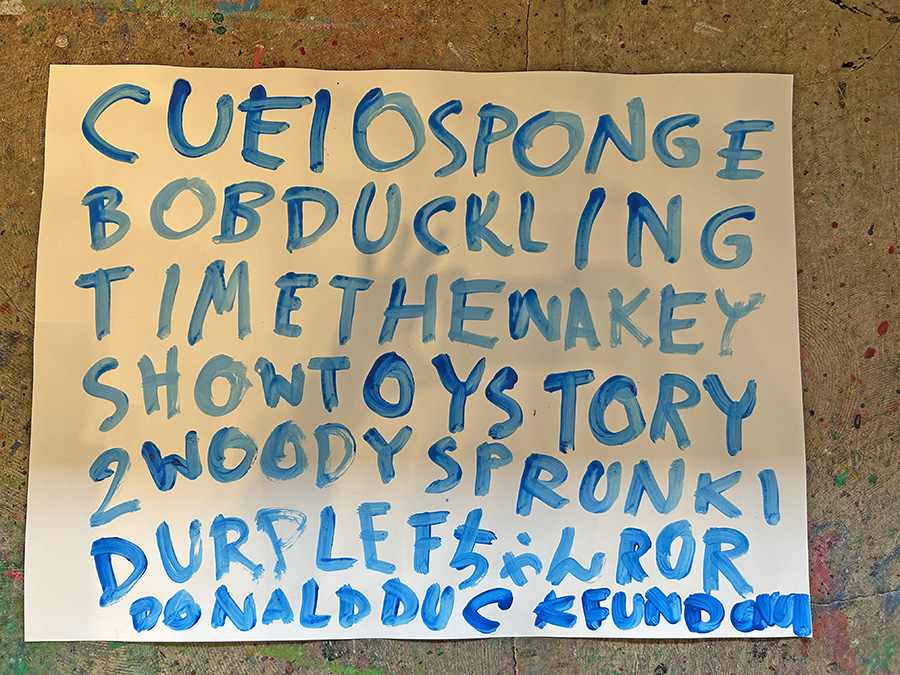 CUEIOSPONGE
BOBDUCKLING
TIMETHEWAKEY
SHOWTOYSTORY
2WOODYSPRUNKI
DURPLEFちゃんROR
DONALDDUCKFUNDOWI